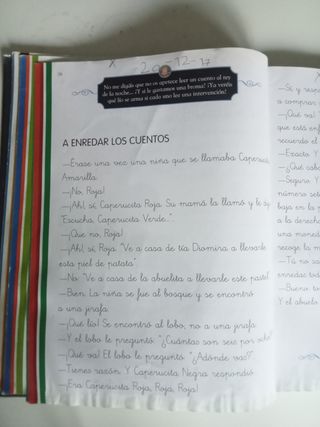 x -20-12-17
No me digáis que no os apetece leer un cuento al rey
de la noche... ¿Y si le gastamos una broma? ¡Ya veréis
qué lío se arma si cada uno lee una intervención!
A ENREDAR LOS CUENTOS
—Érase una vez una niña que se llamaba Caperucita
Amarilla.
—¡No, Roja!
—¡Ah!, sí, Caperucita Roja. Su mamá la llamó y le dijo:
"Escucha, Caperucita Verde...".
—¡Que no, Roja!
—¡Ah!, sí, Roja. "Ve a casa de tía Diomira a llevarle
esta piel de patata".
—No: "Ve a casa de la abuelita a llevarle este pastel".
—Bien. La niña se fue al bosque y se encontró
a una jirafa.
—¡Qué lío! Se encontró al lobo, no a una jirafa.
—Y el lobo le preguntó: "¿Cuántas son seis por ocho?".
—¡Qué va! El lobo le preguntó: "¿Adónde vas?".
—Tienes razón. Y Caperucita Negra respondió...
—¡Era Caperucita Roja, Roja, Roja!
—Sí, y
a comprar
—¡Qué va!
que está
recuerdo el
—Exacto. Y
—¿Qué
—Seguro. Y
número
baja en la
a la
una
recoge la
—Tú no
enredas
—Bueno,
Y el abuelo